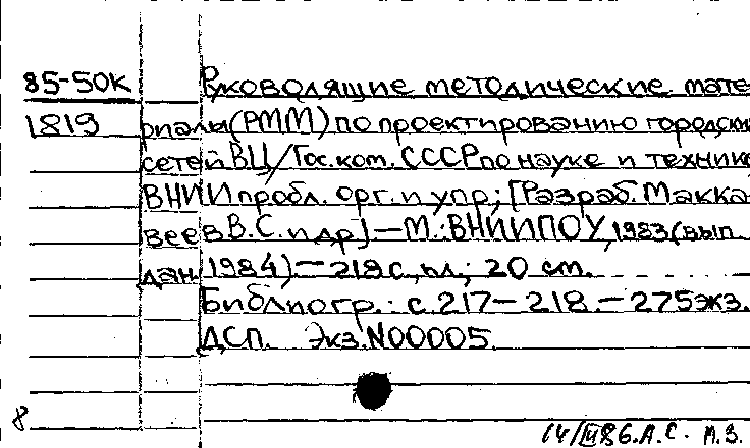 85-50К Руководящие методические мате
1819 риалы (РММ) по проектированию городских
сетей ВЦ/Гос.ком. СССР по науке и технике,
ВНИИ пробл. орг. и упр; [Разраб. Макка
веев В.С. и др.] — М.: ВНИИПОУ, 1983 (вып.
дан. 1984). — 218 с., ил.; 20 см.
Библиогр.: с. 217 — 218. — 275 экз.
ДСП. Экз. N00005.
8 14/III 86. А.С. М.З.